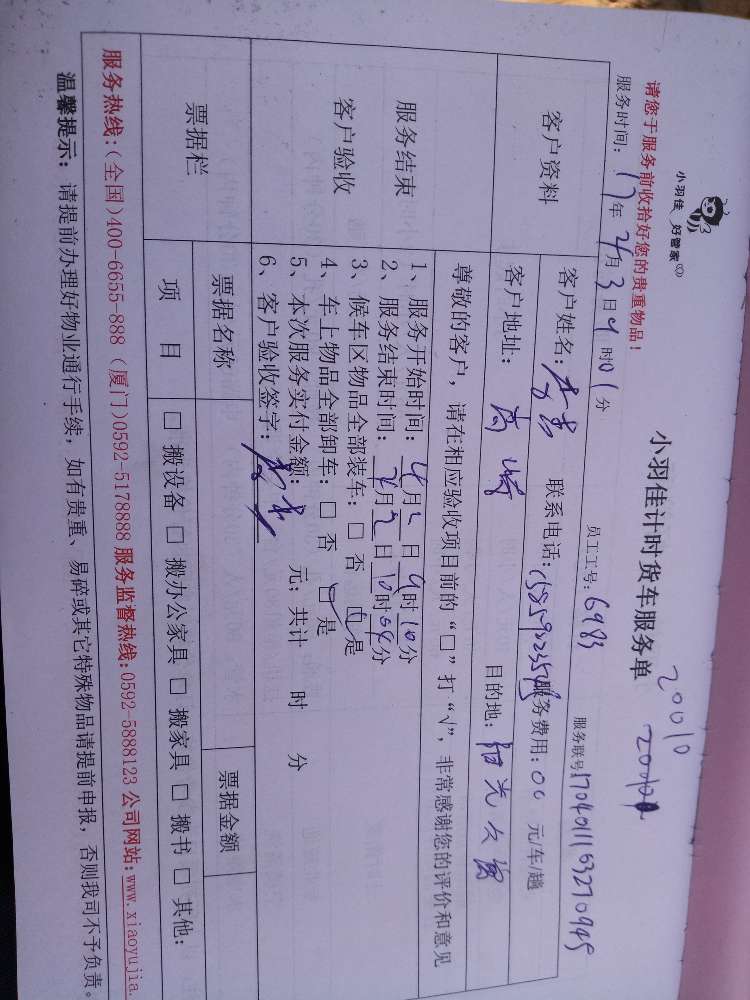 小羽佳 好管家
小羽佳计时货车服务单
20010
请您于服务前收拾好您的贵重物品！
员工工号：6983
服务联号
服务时间：17年4月3日9时01分
客户资料
客户姓名：
联系电话：
服务费用：00 元/车/趟
客户地址：高崎
目的地：阳光公寓
服务结束
客户验收
尊敬的客户，请在相应验收项目前的“□”打“√”，非常感谢您的评价和意见
1、服务开始时间：4月2日9时10分
2、服务结束时间：月2日10时04分
3、候车区物品全部装车：□ 否 □ 是
4、车上物品全部卸车：□ 否 □ 是
5、本次服务实付金额： 元；共计 时 分
6、客户验收签字：
票据栏
票据名称
票据金额
项 目
□ 搬设备 □ 搬办公家具 □ 搬家具 □ 搬书 □ 其他：
服务热线：(全国)400-6655-888 (厦门)0592-5178888 服务监督热线：0592-5888123 公司网站：www.xiaoyujia.
温馨提示：请提前办理好物业通行手续，如有贵重、易碎或其它特殊物品请提前申报，否则我司不予负责。